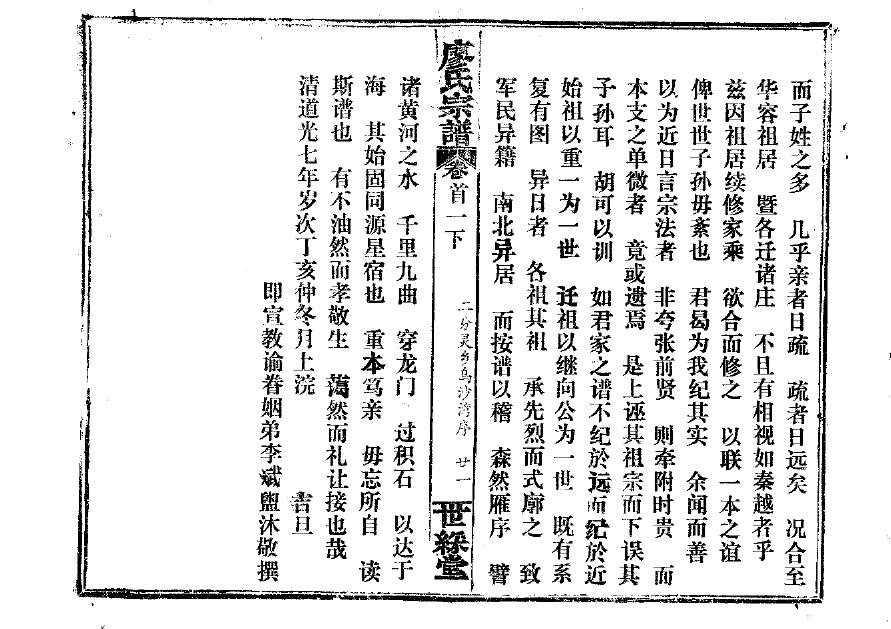 而子姓之多　几乎亲者日疏　疏者日远矣　况合至
华容祖居　暨各迁诸庄　不且有相视如秦越者乎
兹因祖居续修家乘　欲合而修之　以联一本之谊
俾世世子孙毋紊也　君曷为我纪其实　余闻而善
以为近日言宗法者　非夸张前贤　则牵附时贵　而
本支之单微者　竟或遗焉　是上诬其祖宗而下误其
子孙耳　胡可以训　如君家之谱不纪於远而纪於近
始祖以重一为一世　迁祖以继向公为一世　既有系
复有图　异日者　各祖其祖　承先烈而式廓之　致
军民异籍　南北异居　而按谱以稽　森然雁序　譬
廖氏宗譜　卷首一下　二分灵乡乌沙湾序　廿一　世綵堂
诸黄河之水　千里九曲　穿龙门　过积石　以达于
海　其始固同源星宿也　重本笃亲　毋忘所自　读
斯谱也　有不油然而孝敬生　蔼然而礼让接也哉
清道光七年岁次丁亥仲冬月上浣　　吉旦
即宣教谕眷姻弟李斌盥沐敬撰